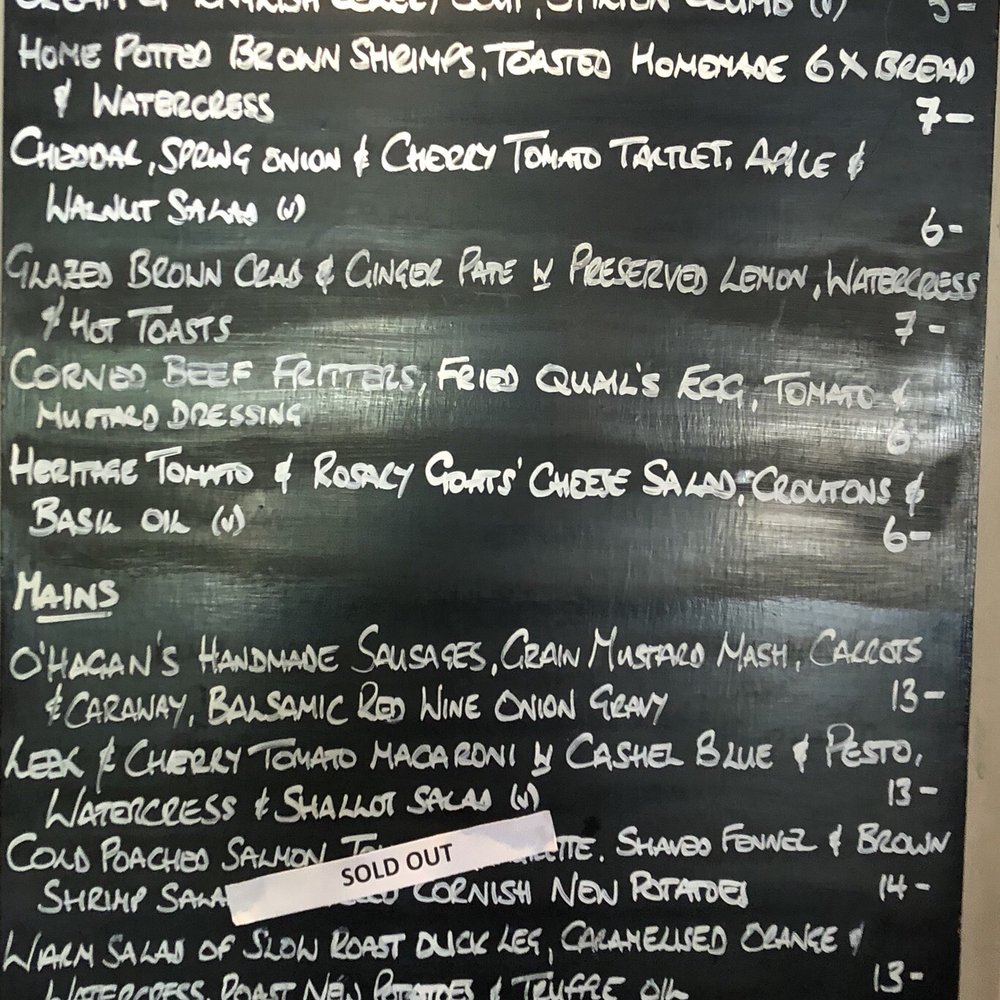 CREAM OF
SOUP, STILTON CRUMB (V) 5-
HOME POTTED BROWN SHRIMPS, TOASTED HOMEMADE 6X BREAD
& WATERCRESS 7-
CHEDDAR, SPRING ONION & CHERRY TOMATO TARTLET, APPLE &
WALNUT SALAD (V) 6-
GLAZED BROWN CRAB & GINGER PATE W PRESERVED LEMON, WATERCRESS
& HOT TOASTS 7-
CORNED BEEF FRITTERS, FRIED QUAIL'S EGG, TOMATO &
MUSTARD DRESSING 6-
HERITAGE TOMATO & ROSARY GOATS' CHEESE SALAD, CROUTONS &
BASIL OIL (V) 6-
MAINS
O'HAGAN'S HANDMADE SAUSAGES, GRAIN MUSTARD MASH, CARROTS
& CARAWAY, BALSAMIC RED WINE ONION GRAVY 13-
LEEK & CHERRY TOMATO MACARONI W CASHEL BLUE & PESTO,
WATERCRESS & SHALLOT SALAD (V) 13-
COLD POACHED SALMON SHAVED FENNEL & BROWN
SOLD OUT
SHRIMP CORNISH NEW POTATOES 14-
WARM SALAD OF SLOW ROAST DUCK LEG, CARAMELISED ORANGE &
WATERCRESS, ROAST NEW POTATOES & TRUFFLE OIL 13-